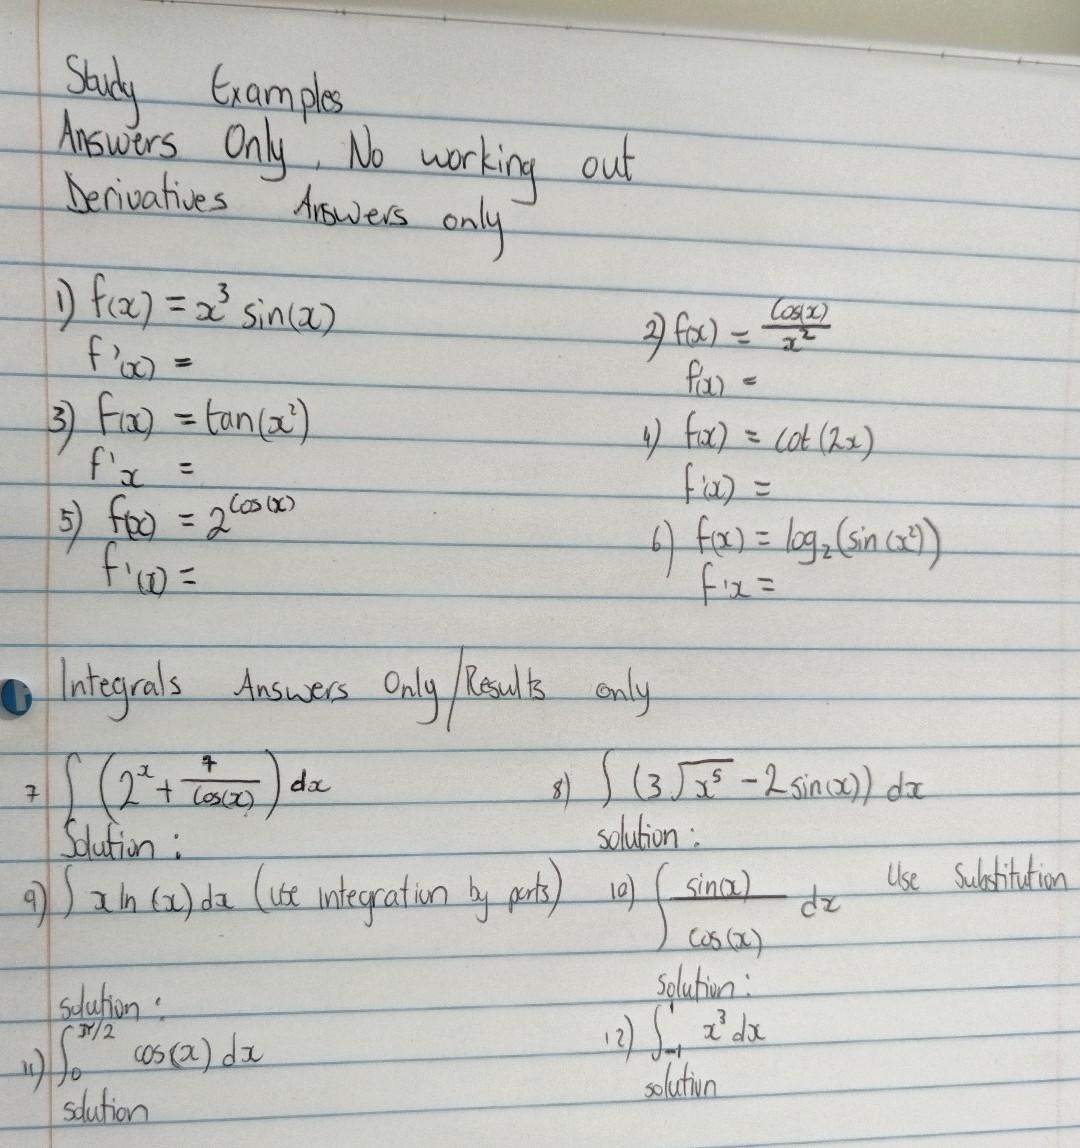 Study Examples
Answers Only, No working out
Derivatives Answers only
1) f(x) = x³ sin(x)
2) f(x) = cos(x)/x²
f'(x) =
f'(x) =
3) f(x) = tan(x²)
4) f(x) = cot(2x)
f'x =
f'(x) =
5) f(x) = 2^cos(x)
6) f(x) = log₂(sin(x²))
f'(x) =
f'x =
Integrals Answers Only/Results only
7 ∫ (2^x + 7/cos(x)) dx
8) ∫ (3√x⁵ - 2 sin(x)) dx
Solution :
solution :
9) ∫ x ln (x) dx (use integration by parts)
10) ∫ sin(x)/cos(x) dx Use Substitution
solution :
solution :
11) ∫₀^π/2 cos(x) dx
12) ∫₋₁¹ x³ dx
solution
solution